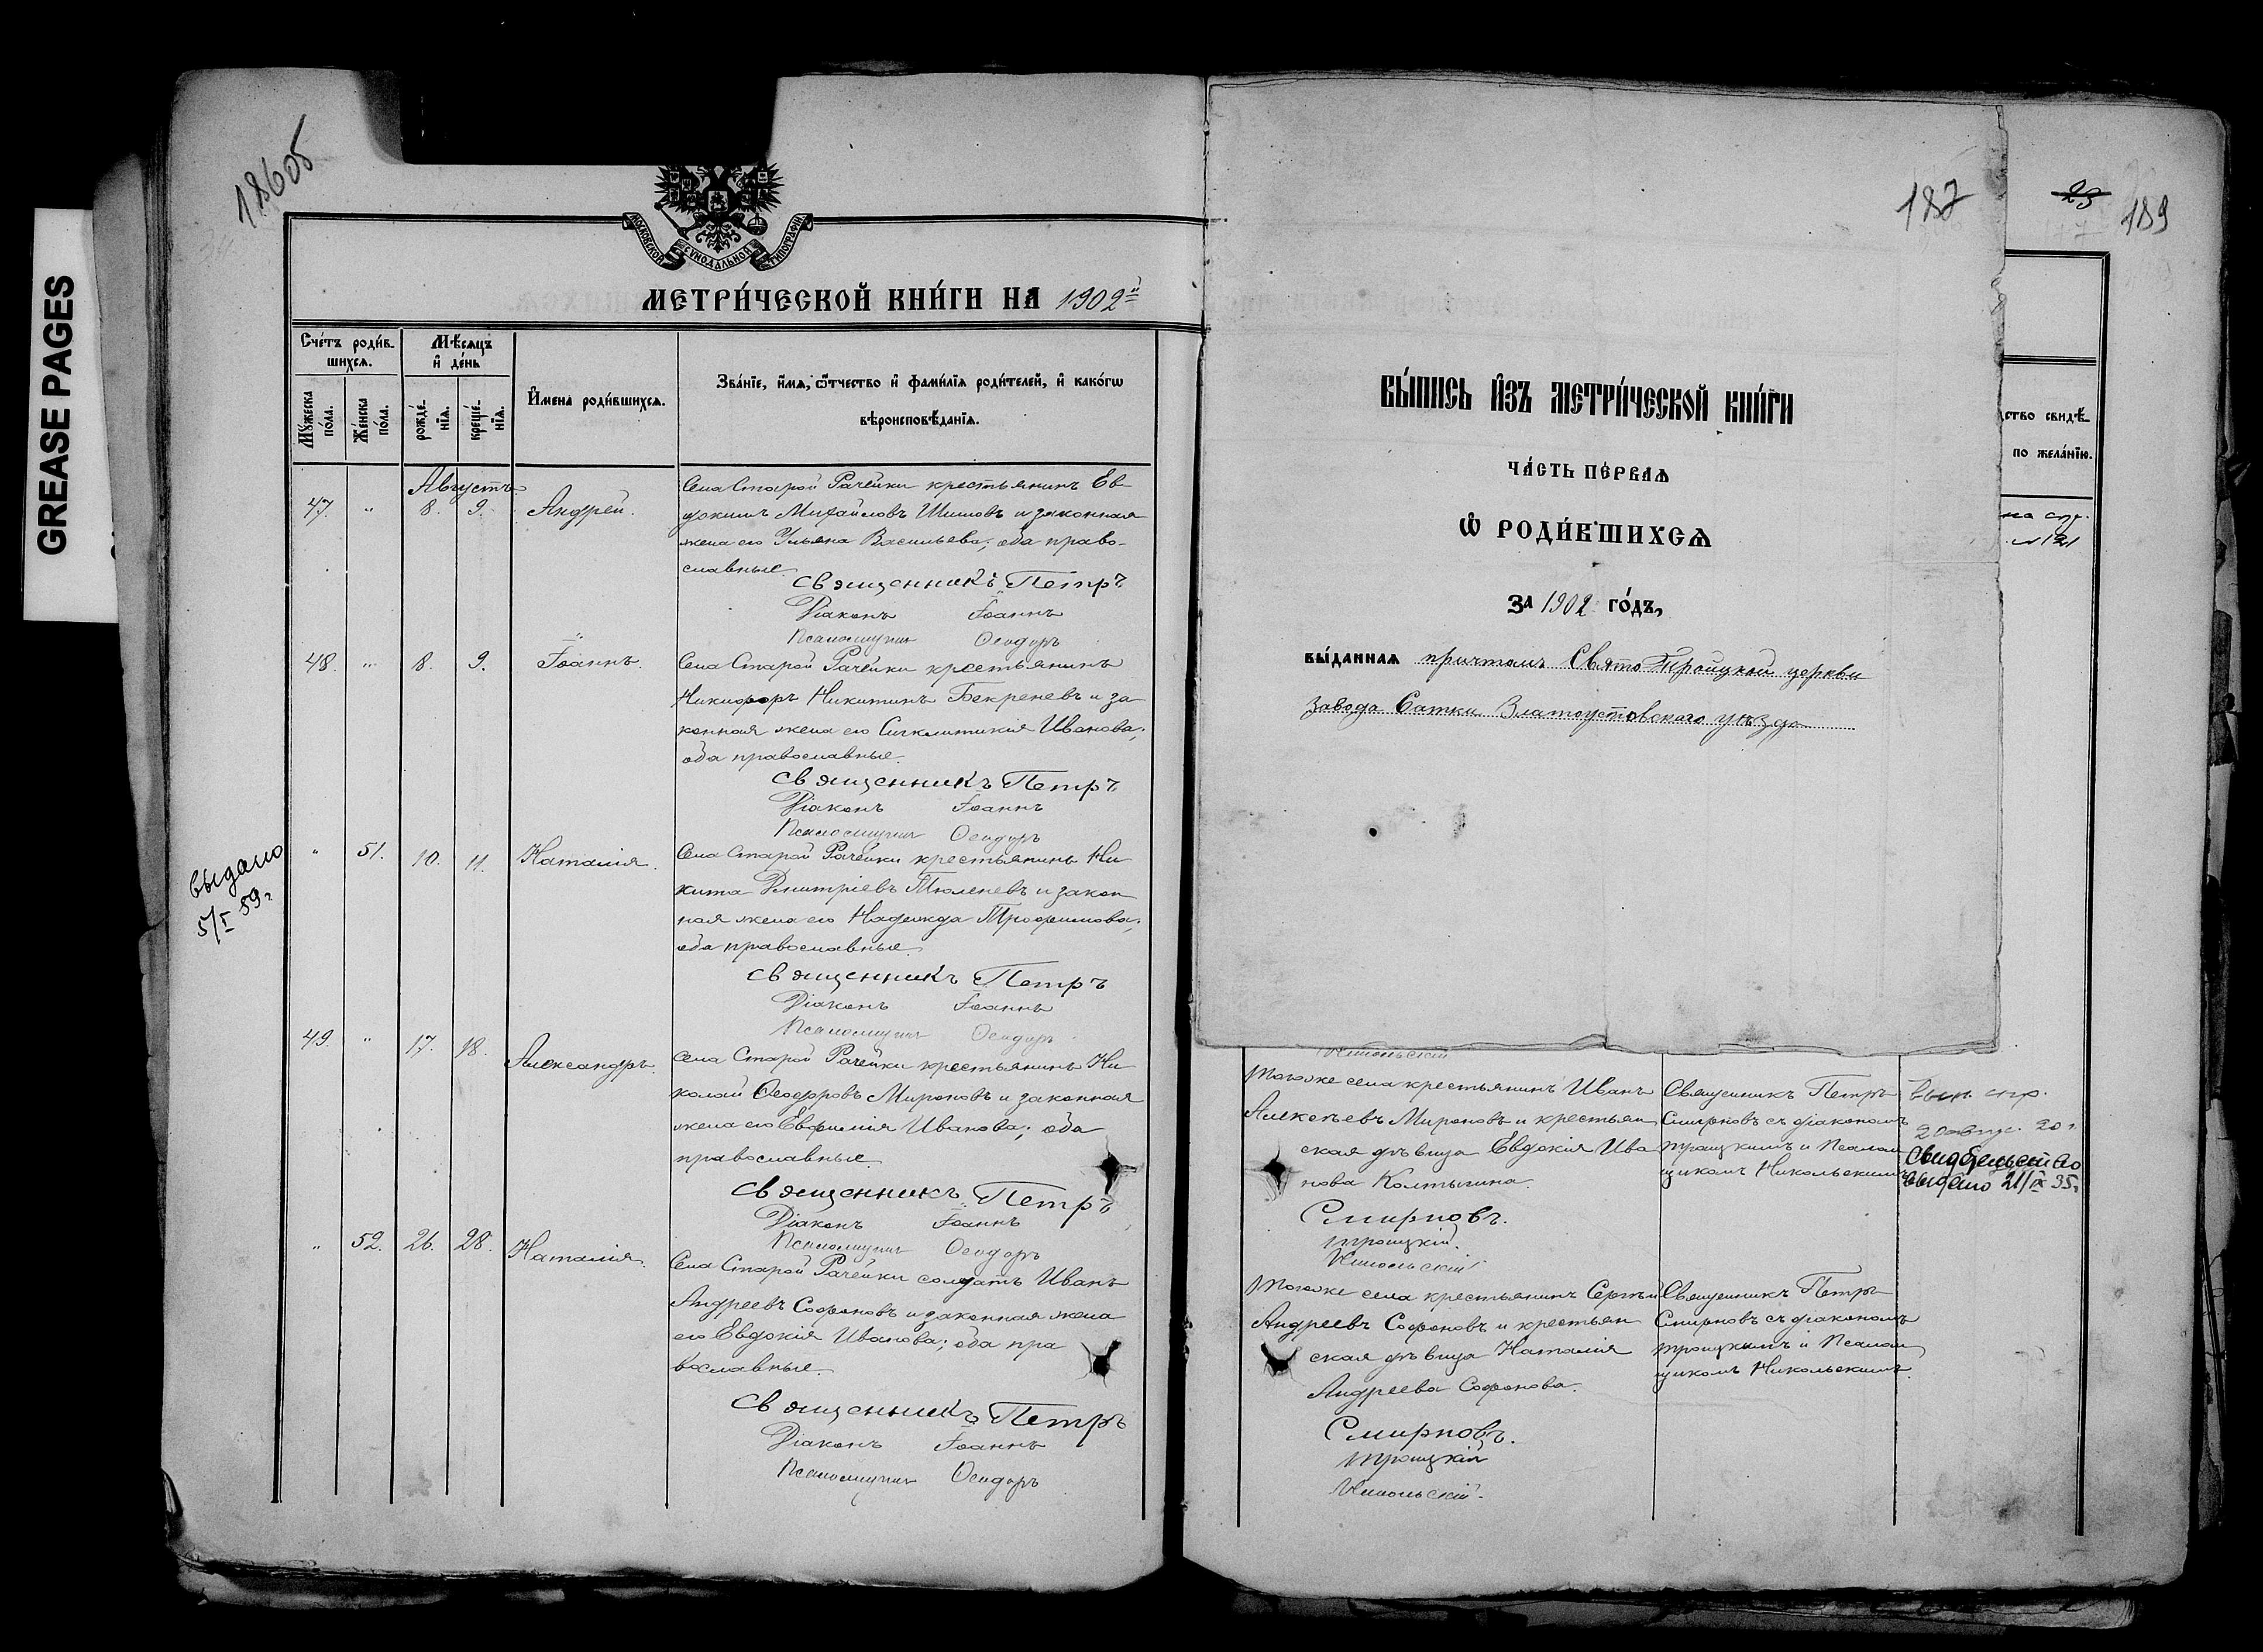 GREASE PAGES
18605
МОСКОВСКОЙ СѴНОДАЛЬНОЙ ТИПОГРАФІИ
МЕТРИ́ЧЕСКОЙ КНИ́ГИ НА 1902й
Сче́тъ роди́в-
шихсѧ.
Мѣ́сяцъ
и҆ де́нь
Мꙋ́жеска
по́ла.
Же́нска
по́ла.
рожде́-
нїѧ.
креще́-
нїѧ.
И҆мена̀ роди́вшихсѧ.
Зва́нїе, и҆́мѧ, ѻ҆́тчество и҆ фамі́лїѧ роди́телей, и҆ како́гѡ
вѣроисповѣ́данїѧ.
Августъ
47. " 8. 9. Андрей.
Села Старой Рачейки крестьянинъ Ев-
докимъ Михайловъ Шишовъ и законная
жена его Ульяна Васильева; оба право-
славные.
Священникъ Петръ
Діаконъ Іоаннъ
Псаломщикъ Ѳеодоръ
48. " 8. 9. Іоаннъ.
Села Старой Рачейки крестьянинъ
Никифоръ Никитинъ Бекреневъ и за
конная жена его Сигклитикія Иванова;
оба православные.
Священникъ Петръ
Діаконъ Іоаннъ
Псаломщикъ Ѳеодоръ
выдано
5/I 59г
" 51. 10. 11. Наталія.
Села Старой Рачейки крестьянинъ Ни
кита Димитріевъ Тюленевъ и закон
ная жена его Надежда Трофимова;
оба православные.
Священникъ Петръ
Діаконъ Іоаннъ
Псаломщикъ Ѳеодоръ
49. " 17. 18. Александръ.
Села Старой Рачейки крестьянинъ Ни
колай Ѳеодоровъ Мироновъ и законная
жена его Евфимія Иванова; оба
православные.
Священникъ Петръ
Діаконъ Іоаннъ
Псаломщикъ Ѳеодоръ
" 52. 26. 28. Наталія.
Села Старой Рачейки солдатъ Иванъ
Андреевъ Софоновъ и законная жена
его Евдокія Иванова; оба пра
вославные.
Священникъ Петръ
Діаконъ Іоаннъ
Псаломщикъ Ѳеодоръ
187
23
189
ВЫ́ПИСЬ И҆ЗЪ МЕТРИ́ЧЕСКОЙ КНИ́ГИ
ЧА́СТЬ ПЕ́РВАѦ
Ѡ҆ РОДИ́ВШИХСѦ
ЗА 1902 ГО́ДЪ,
ВЫ́ДАННАѦ причтомъ Свято Троицкой церкви
завода Сатки Златоустовскаго уѣзда
ство свидѣ-
по жела́нїю.
на
№ 121
Никольскій
Тогоже села крестьянинъ Иванъ
Алексѣевъ Мироновъ и крестьян
ская дѣвица Евдокія Ива
нова Колтыгина.
Смирновъ.
Троицкій.
Никольскій
Священникъ Петръ
Смирновъ съ діакономъ
Троицкимъ и Псалом
щикомъ Никольскимъ
20 авг. 20 г.
Свидетельство
выдано 21/IX 35г
Тогоже села крестьянинъ Сергѣй
Андреевъ Софоновъ и крестьян
ская дѣвица Наталія
Андреева Софонова.
Смирновъ.
Троицкій
Никольскій.
Священникъ Петръ
Смирновъ съ діакономъ
Троицкимъ и Псалом
щикомъ Никольскимъ.